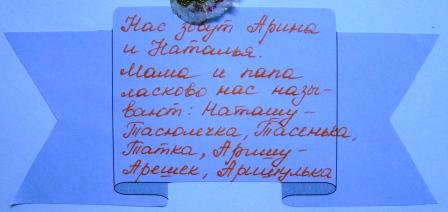 Нас зовут Арина
и Наталья.
Мама и папа
ласково нас назы-
вают: Наташу -
Тасюлечка, Тасенька,
Татка, Аришу -
Арешек, Аришулька